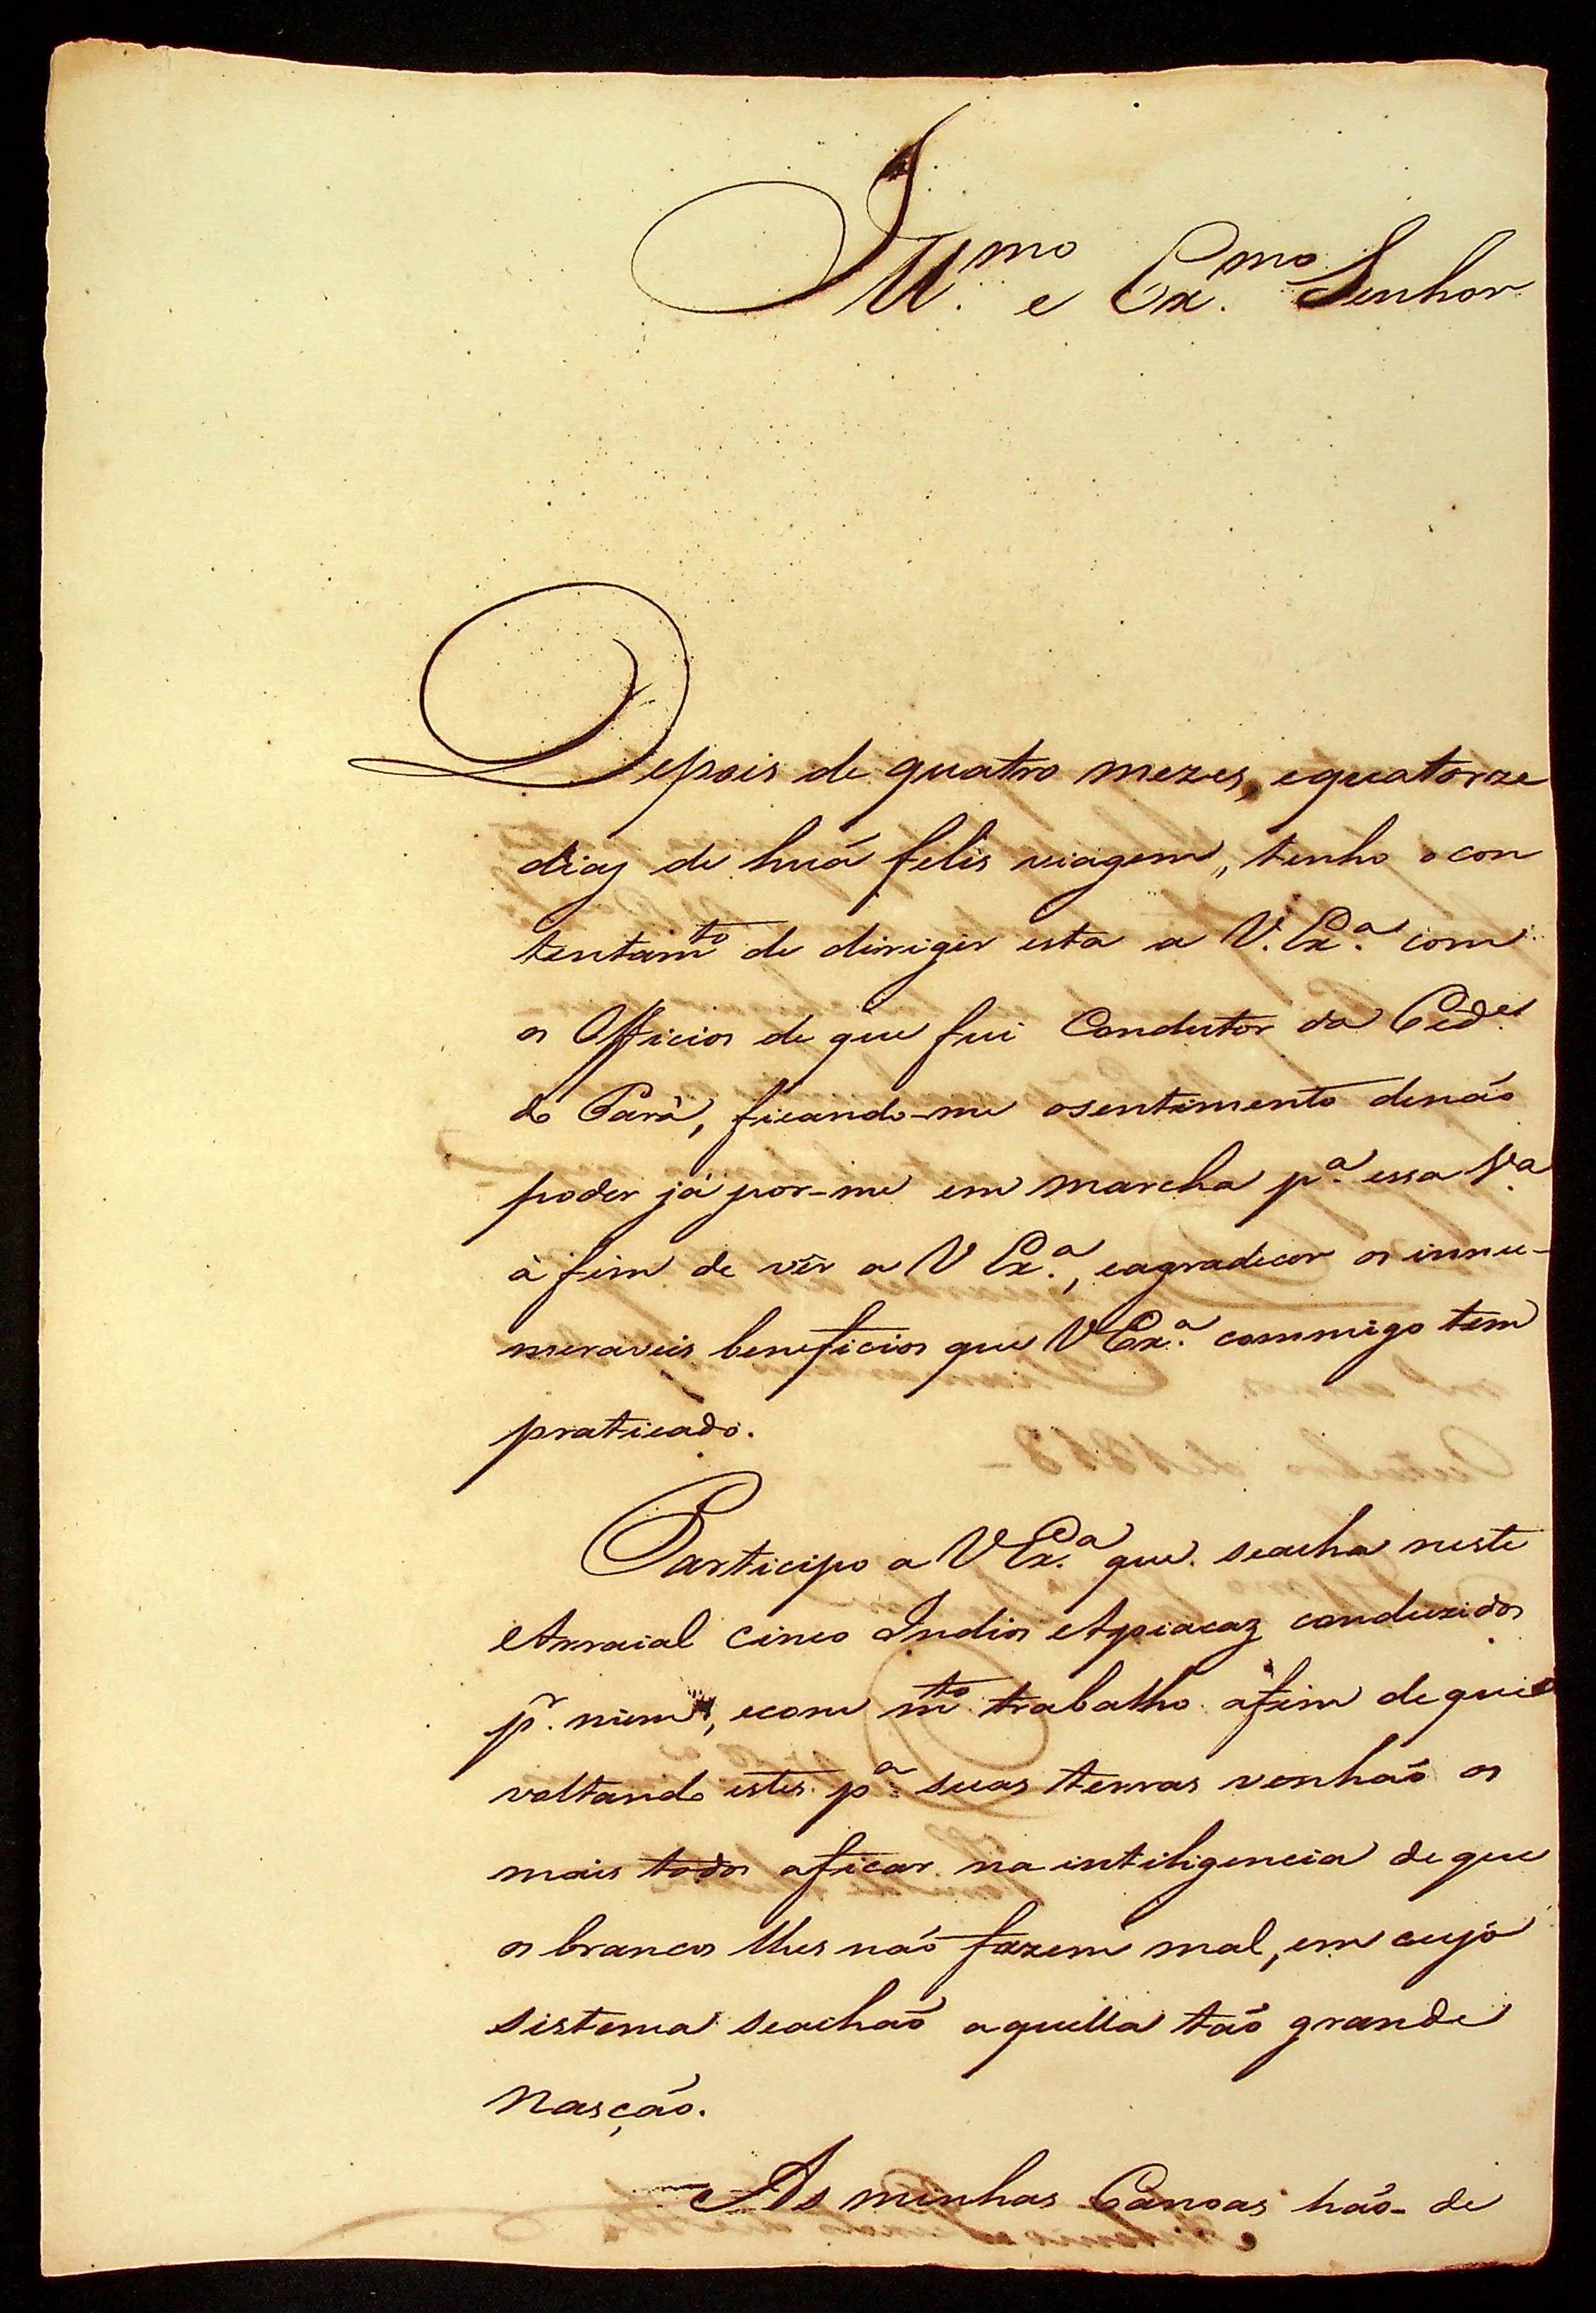 Ill.mo e Ex.mo Senhor
Depois de quatro mezes, equatorze
dias de huá felis viagem, tenho o con
tentam.to de dirigir esta a V. Ex.a com
os Officios de que fui Condutor da Cid.e
do Pará, ficando-me osentimento denaõ
poder já por-me em marcha p.a essa V.a
à fim de vêr a V Ex.a, eagradecer os innu-
meraveis beneficios que V Ex.a commigo tem
praticado.
Participo a V Ex.a que seacha neste
Arraial cinco Indios Apiacaz conduzidos
p.r mim, ecom m.to trabalho afim de que
voltando estes p.a suas terras venhaõ os
mais todos aficar na intiligencia de que
os brancos lhes naõ fazem mal, em cujo
sistema seachaõ aquella taõ grande
Nasçaõ.
As minhas Canoas haõ-de